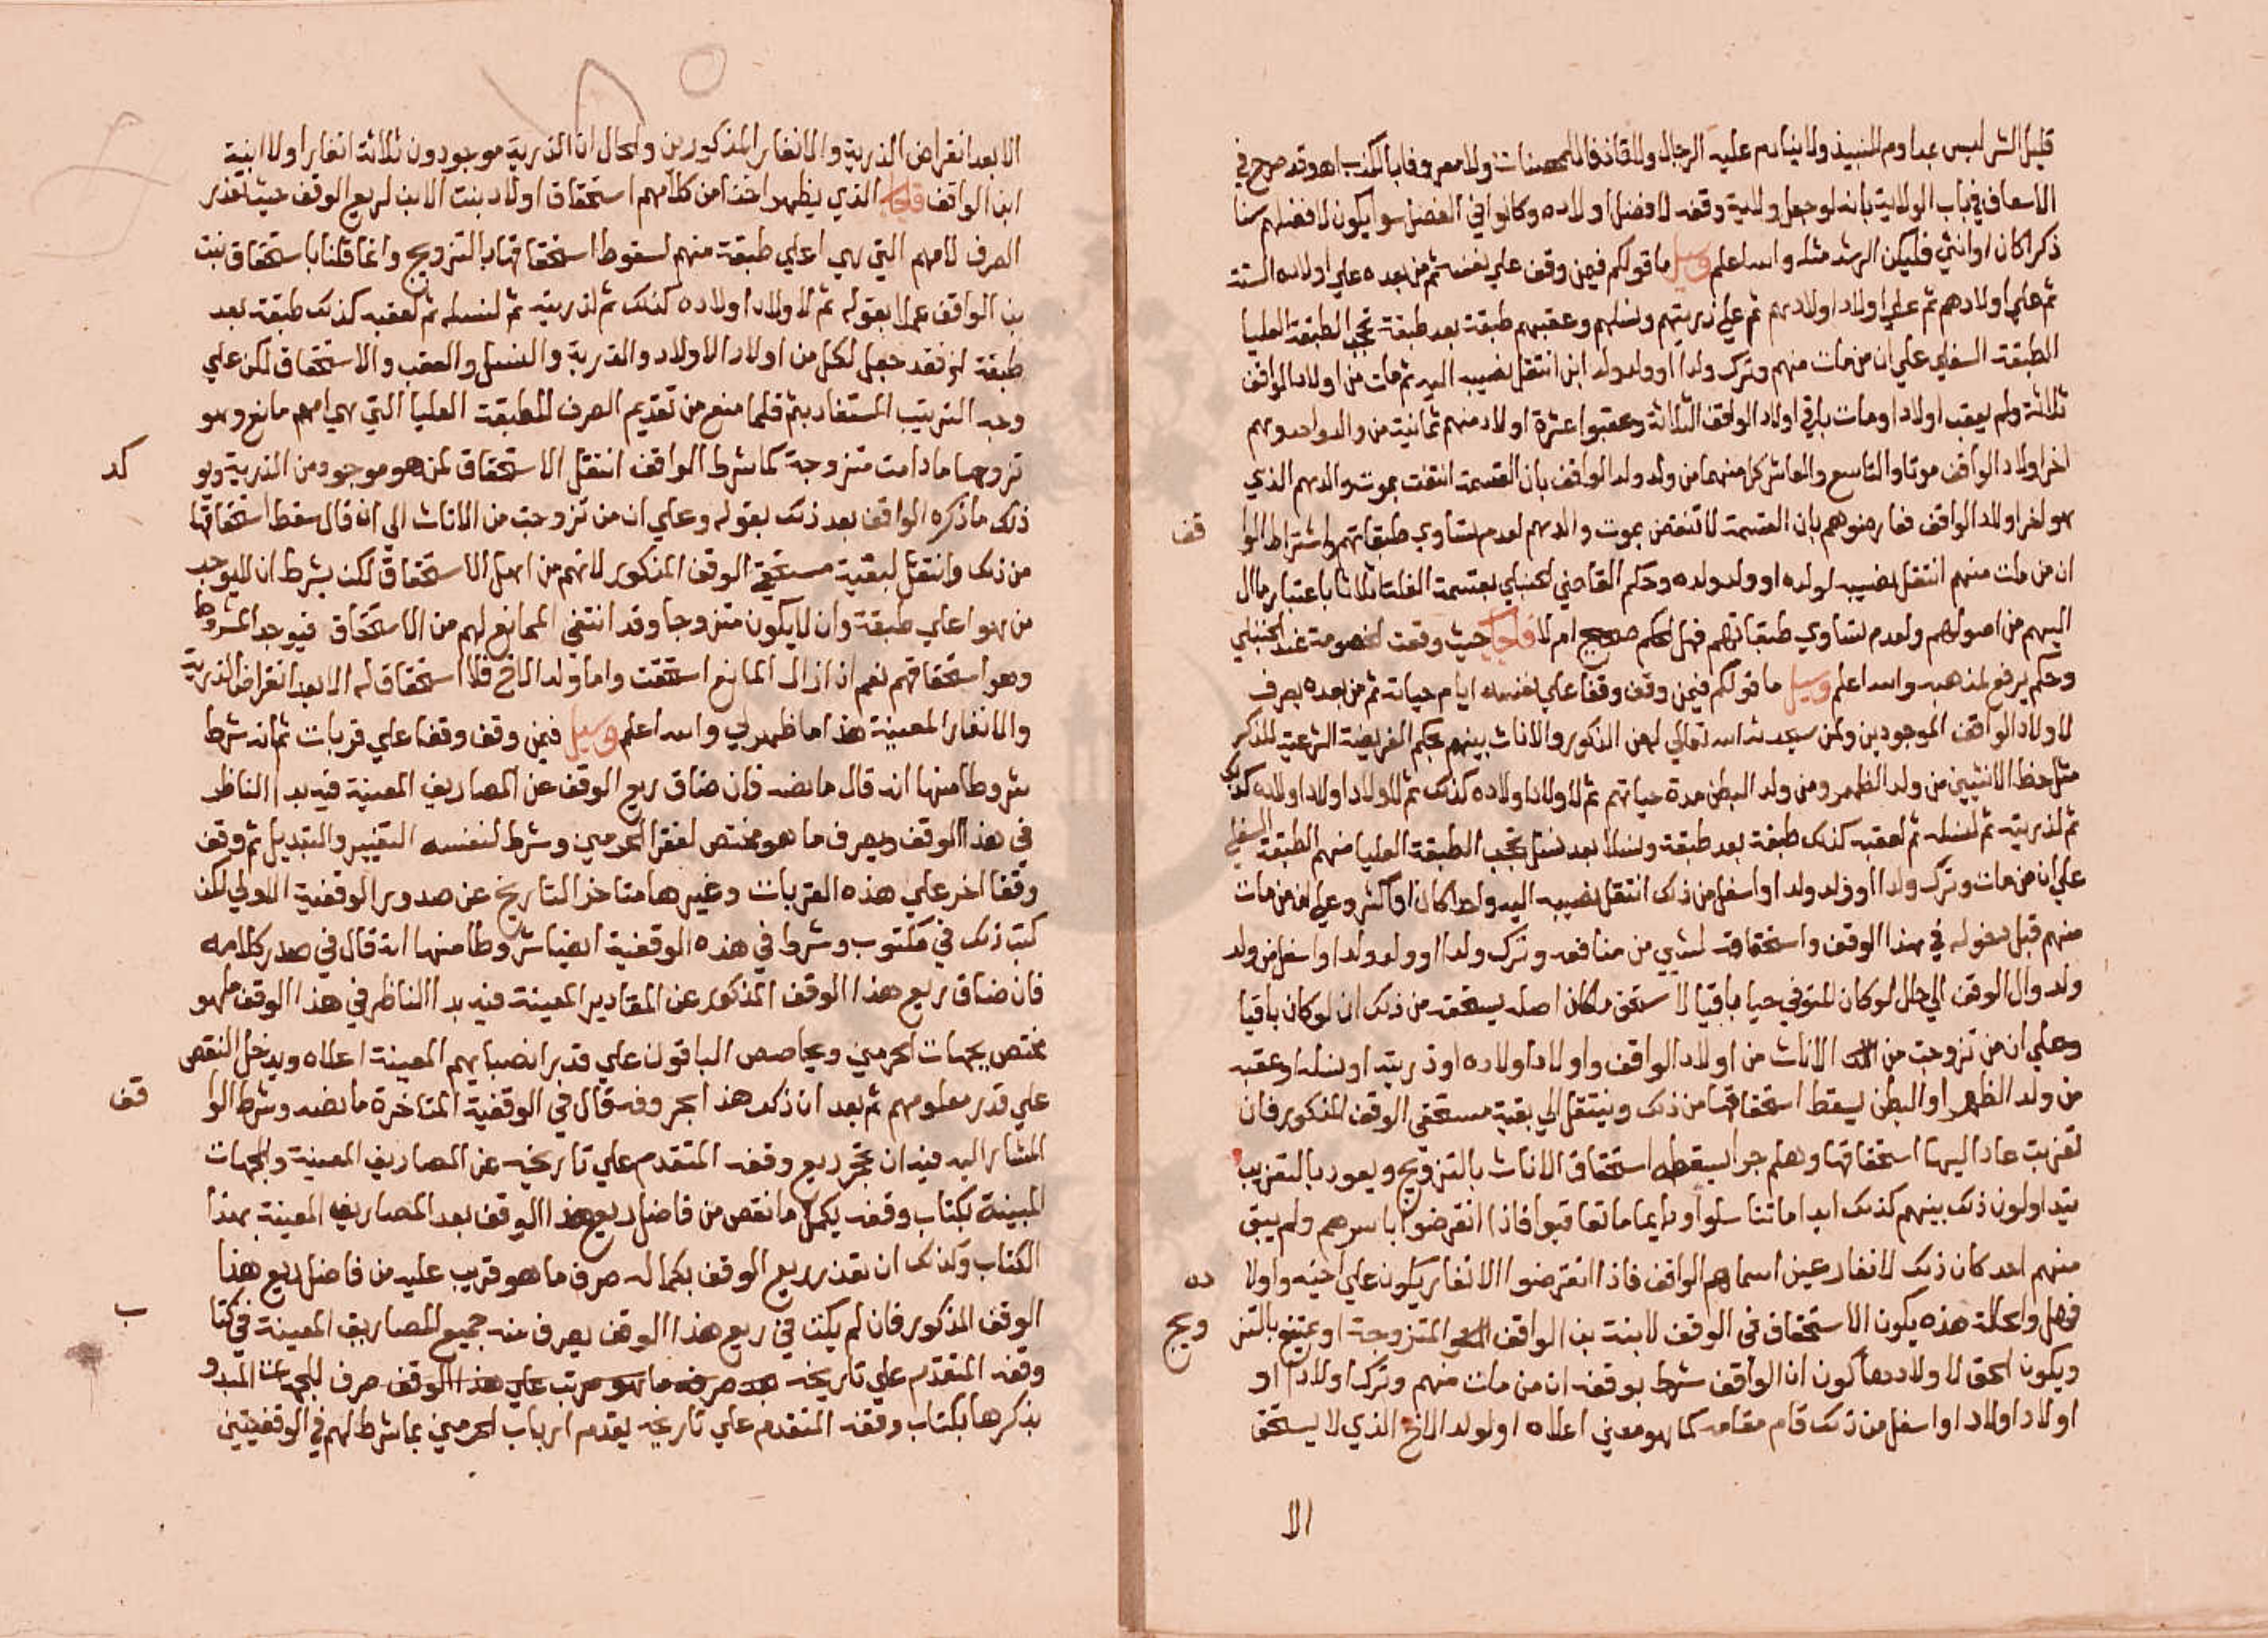 قليل الشر ليس بمداوم النبيذ ولا ينادم عليه الرجال ولا قاذفا للمحصنات ولا معروفا بالكذب اهـ وقد صرح في
الاسعاف في باب الولاية بانه لو جعل ولاية وقفه لافضل اولاده وكانوا في الفضل سوا يكون لافضلهم سنا
ذكرا كان او انثي فليكن الرشد مثله والله اعلم وسيل ما قولكم فيمن وقف علي نفسه ثم من بعده علي اولاده الستة
ثم علي اولادهم ثم علي اولاد اولادهم ثم علي ذريتهم ونسلهم وعقبهم طبقة بعد طبقة تحجب الطبقة العليا
الطبقة السفلي علي ان من مات منهم وترك ولدا او ولد ولد ابن انتقل نصيبه اليه ثم مات من اولاد الواقف
ثلاثة ولم يعقب اولادا ومات باقي اولاد الواقف الثلاثة وعقبوا عشرة اولاد منهم ثمانية من والد واحد وهم
اخر اولاد الواقف موتا والتاسع والعاشر كل منهما من ولد ولد الواقف بان القسمة انتقت بموت والدهم الذي
هو اخر اولاد الواقف فعارضوهم بان القسمة لا تنقض بموت والدهم لعدم تساوي طبقاتهم ولاشتراط الوا
قف
ان من مات منهم انتقل نصيبه لولده او ولد ولده وحكم القاضي الحنبلي بقسمة الغلة اثلاثا باعتبار ما ال
اليهم من اصولهم ولعدم تساوي طبقاتهم فهل الحكم صحيح ام لا فاجاب حيث وقعت الخصومة عند الحنبلي
وحكم يرفع لمذهبه والله اعلم وسيل ما قولكم فيمن وقف وقفا علي نفسه ايام حياته ثم من بعده يصرف
لاولاد الواقف الموجودين ولمن سيحدثه الله تعالي له من الذكور والاناث بينهم بحكم الفريضة الشرعية للذكر
مثل حظ الانثيين من ولد الظهر ومن ولد البطن مدة حياتهم ثم لاولاد اولاده كذلك ثم لاولاد اولاد اولاده كذلك
ثم لذريته ثم لنسله ثم لعقبه كذلك طبقة بعد طبقة ونسلا بعد نسل تحجب الطبقة العليا منهم الطبقة السفلي
علي ان من مات وترك ولدا او ولد ولد او اسفل من ذلك انتقل نصيبه اليه واحدا كان او اكثر وعلي ان من مات
منهم قبل دخوله في هذا الوقف واستحقاقه لشي من منافعه وترك ولدا او ولد ولد او اسفل من ولد
ولد وال الوقف الي حال لو كان المتوفي حيا باقيا لاستحق ما كان اصله يستحقه من ذلك ان لو كان باقيا
وعلي ان من تزوجت من الاناث من اولاد الواقف واولاد اولاده او ذريته او نسله او عقبه
من ولد الظهر او البطن يسقط استحقاقها من ذلك وينتقل الي بقية مستحقي الوقف المذكور فان
تعزبت عاد اليها استحقاقها وهلم جرا يسقط استحقاق الاناث بالتزويج ويعود بالتعزيب
يتداولون ذلك بينهم كذلك ابدا ما تناسلوا ودايما ما تعاقبوا فاذا انقرضوا باسرهم ولم يبق
منهم احد كان ذلك لانفار عين اسماهم الواقف فاذا انقرضوا الانفار يكون علي اخيه واولا
ده
فهل والحالة هذه يكون الاستحقاق في الوقف لابنة بن الواقف المتزوجة او يمتنع بالتز
ويج
ويكون الحق لاولادها كون ان الواقف شرط بوقفه ان من مات منهم وترك اولادا او
اولاد اولاد او اسفل من ذلك قام مقامه كما هو معين اعلاه او لولد الاخ الذي لا يستحق
الا
الا بعد انقراض الذرية والانفار المذكورين والحال ان الذرية موجودون ثلاثة انفار اولاد ابنة
ابن الواقف فاجاب الذي يظهر اخذا من كلامهم استحقاق اولاد بنت الابن لريع الوقف حيث تعذر
الصرف لامهم التي هي اعلي طبقة منهم لسقوط استحقاقها بالتزويج وانما قلنا باستحقاق بنت
بن الواقف عملا بقوله ثم لاولاد اولاده كذلك ثم لذريته ثم لنسله ثم لعقبه كذلك طبقة بعد
طبقة الخ فقد جعل لكل من اولاد الاولاد والذرية والنسل والعقب والاستحقاق لكن علي
وجه الترتيب المستفاد بثم فلما منع من تقديم الصرف للطبقة العليا التي هي امهم مانع وهو
تزوجها ما دامت متزوجة كما شرط الواقف انتقل الاستحقاق لمن هو موجود من الذرية ويو
كد
ذلك ما ذكره الواقف بعد ذلك بقوله وعلي ان من تزوجت من الاناث الي ان قال سقط استحقاقها
من ذلك وانتقل لبقية مستحقي الوقف المذكور لانهم من اهل الاستحقاق لكن بشرط ان لا يوجد
من هو اعلي طبقة وان لا يكون متزوجا وقد انتفي المانع لهم من الاستحقاق فيوجد المشروط
وهو استحقاقهم نعم اذا زال المانع استحقت واما ولد الاخ فلا استحقاق له الا بعد انقراض الذرية
والانفار المعينة هذا ما ظهر لي والله اعلم وسيل فيمن وقف وقفا علي قربات ثم انه شرط
شروطا منها انه قال ما نصه فان ضاق ريع الوقف عن المصاريف المعينة فيه بدا الناظر
في هذا الوقف وبصرف ما هو مختص لفقرا الحرمين وشرط لنفسه التغيير والتبديل ثم وقف
وقفا اخر علي هذه القربات وغيرها متاخر التاريخ عن صدور الوقفية الاولي لكن
كتب ذلك في مكتوب وشرط في هذه الوقفية ايضا شروطا منها انه قال في صدر كلامه
فان ضاق ريع هذا الوقف المذكور عن المقادير المعينة فيه بدا الناظر في هذا الوقف ما هو
مختص بجهات الحرمين ويحاصص الباقون علي قدر انصبايهم المعينة اعلاه ويدخل النقص
علي قدر معلومهم ثم بعد ان ذكر هذا بحروفه قال في الوقفية المتاخرة ما نصه وشرط الوا
قف
المشار اليه فيه ان عجز ريع وقفه المتقدم علي تاريخه عن المصاريف المعينة والجهات
المبينة بكتاب وقفه يكمل ما نقص من فاضل ريع هذا الوقف بعد المصاريف المعينة بهذا
الكتاب وكذلك ان تعذر ريع الوقف بكماله صرف ما هو قريب عليه من فاضل ريع هذا
الوقف المذكور فان لم يكن في ريع هذا الوقف يصرف منه جميع المصاريف المعينة في كتا
ب
وقفه المتقدم علي تاريخه بعد صرف ما هو مرتب علي هذا الوقف صرف للجهات المبدو
بذكرها بكتاب وقفه المتقدم علي تاريخه يقدم ارباب الحرمين بما شرط لهم في الوقفيتين